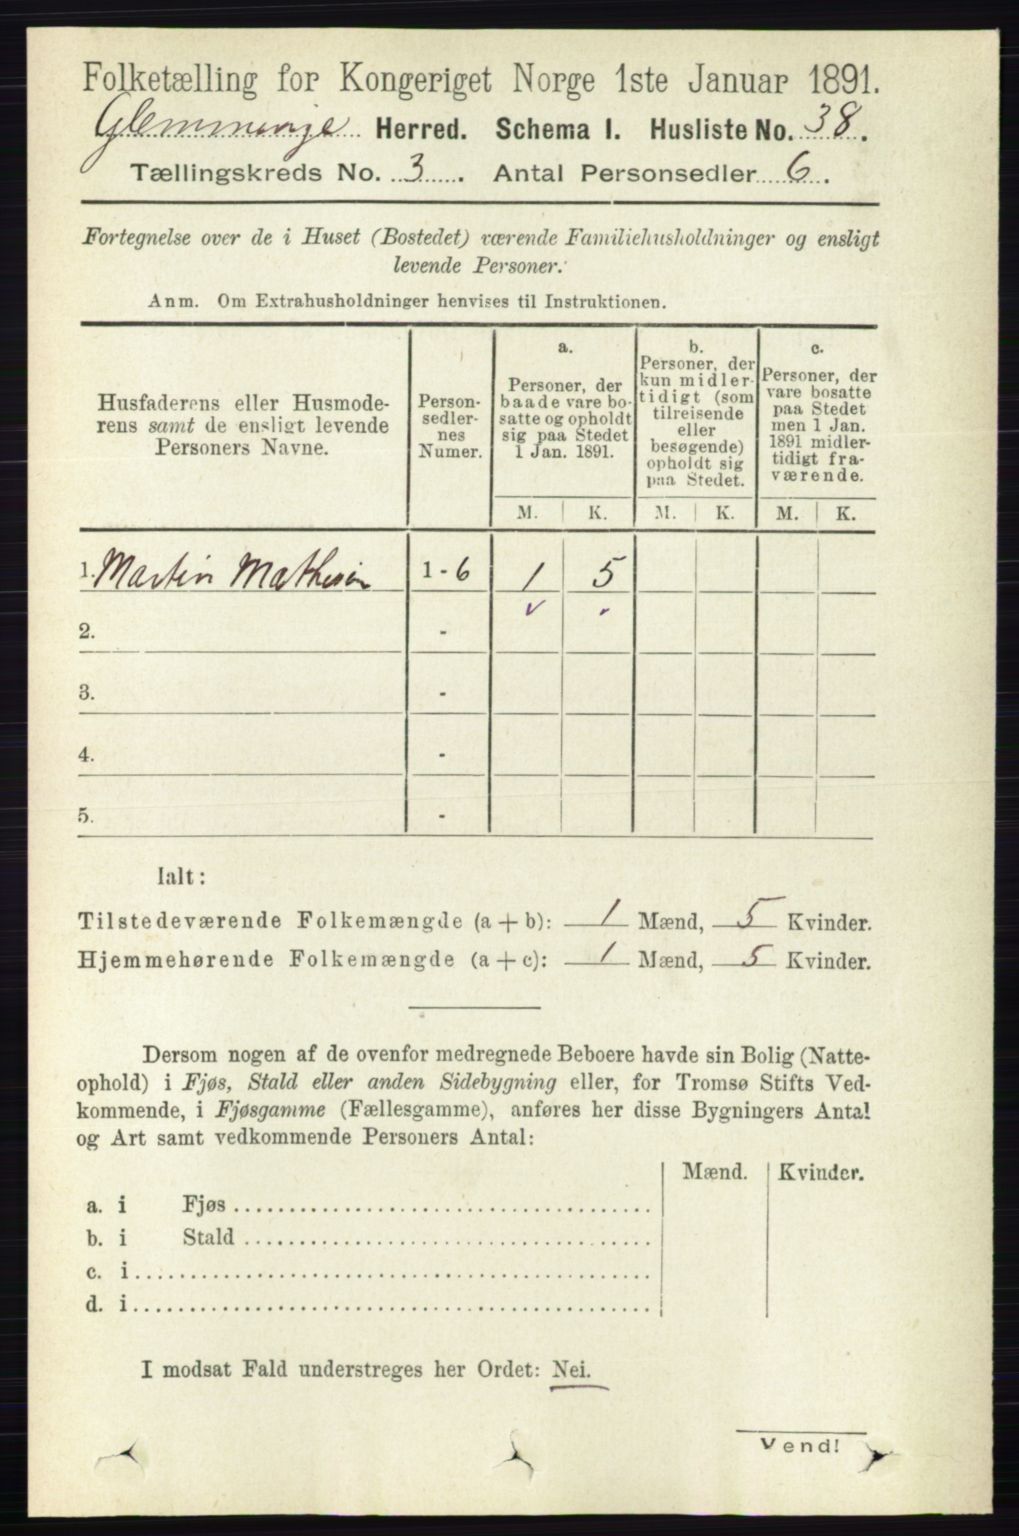 Folketælling for Kongeriget Norge 1ste Januar 1891.
Glemminge Herred. Schema I. Husliste No. 38.
Tællingskreds No. 3. Antal Personsedler 6.
Fortegnelse over de i Huset (Bostedet) værende Familiehusholdninger og ensligt
levende Personer.
Anm. Om Extrahusholdninger henvises til Instruktionen.
Husfaderens eller Husmode-
rens samt de ensligt levende
Personers Navne.
Person-
sedler-
nes
Numer.
a.
Personer, der
baade vare bo-
satte og opholdt
sig paa Stedet
1 Jan. 1891.
b.
Personer, der
kun midler-
tidigt (som
tilreisende
eller
besøgende)
opholdt sig
paa Stedet.
c.
Personer, der
vare bosatte
paa Stedet
men 1 Jan.
1891 midler-
tidigt fra-
værende.
M. K. M. K. M. K.
1. Martin Mathisen 1 - 6 1 5
2. -
3. -
4. -
5. -
Ialt:
Tilstedeværende Folkemængde (a + b): 1 Mænd, 5 Kvinder.
Hjemmehørende Folkemængde (a + c): 1 Mænd, 5 Kvinder.
Dersom nogen af de ovenfor medregnede Beboere havde sin Bolig (Natte-
ophold) i Fjøs, Stald eller anden Sidebygning eller, for Tromsø Stifts Ved-
kommende, i Fjøsgamme (Fællesgamme), anføres her disse Bygningers Antal
og Art samt vedkommende Personers Antal:
Mænd. Kvinder.
a. i Fjøs
b. i Stald
c. i
d. i
I modsat Fald understreges her Ordet: Nei.
Vend!